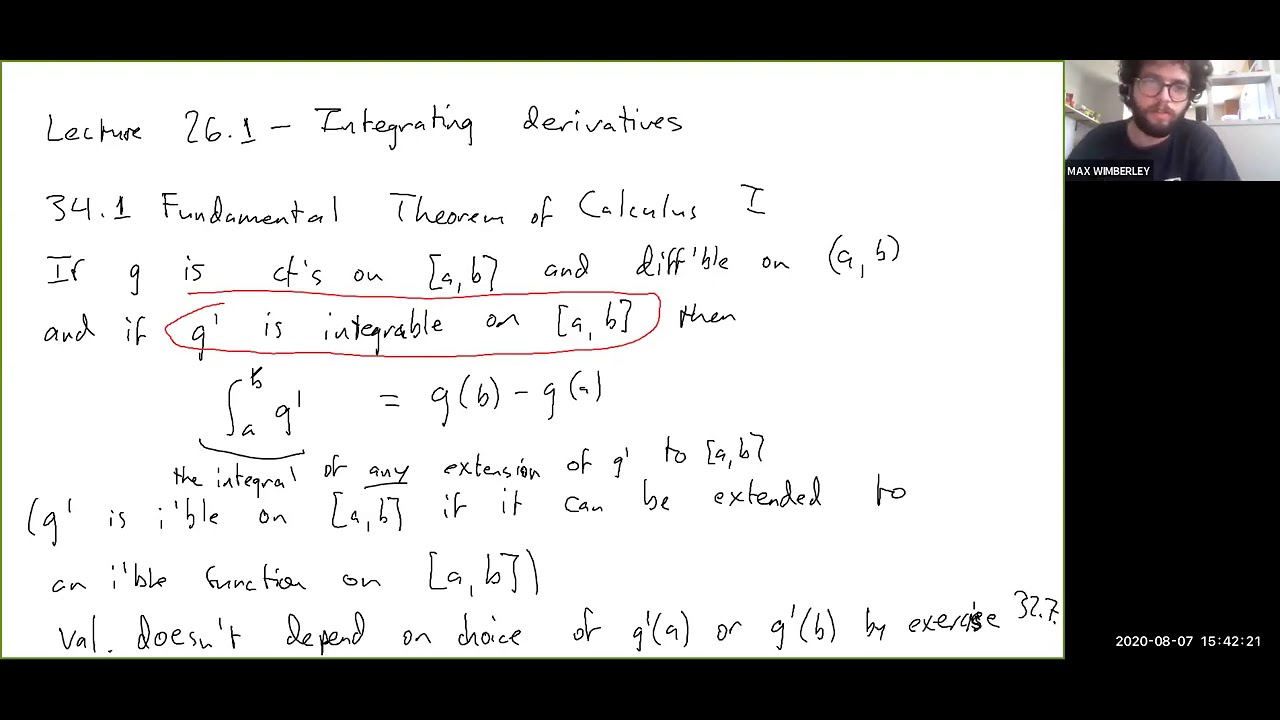 Lecture 26.1 - Integrating derivatives
34.1 Fundamental Theorem of Calculus I
If g is ct's on [a, b] and diff'ble on (a, b)
and if g' is integrable on [a, b] then
∫_a^b g' = g(b) - g(a)
the integral of any extension of g' to [a, b]
(g' is i'ble on [a, b] if it can be extended to
an i'ble function on [a, b])
val. doesn't depend on choice of g'(a) or g'(b) by exercise 32.7.
MAX WIMBERLEY
2020-08-07 15:42:21